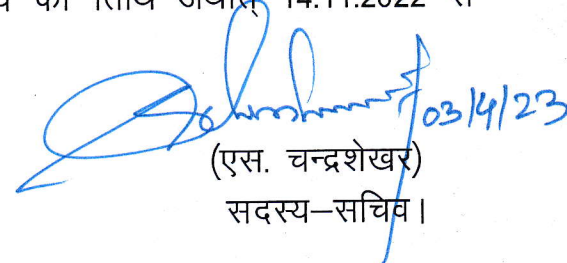 की तिथि अर्थात् 14.11.2022 से
03/4/23
(एस. चन्द्रशेखर)
सदस्य–सचिव।